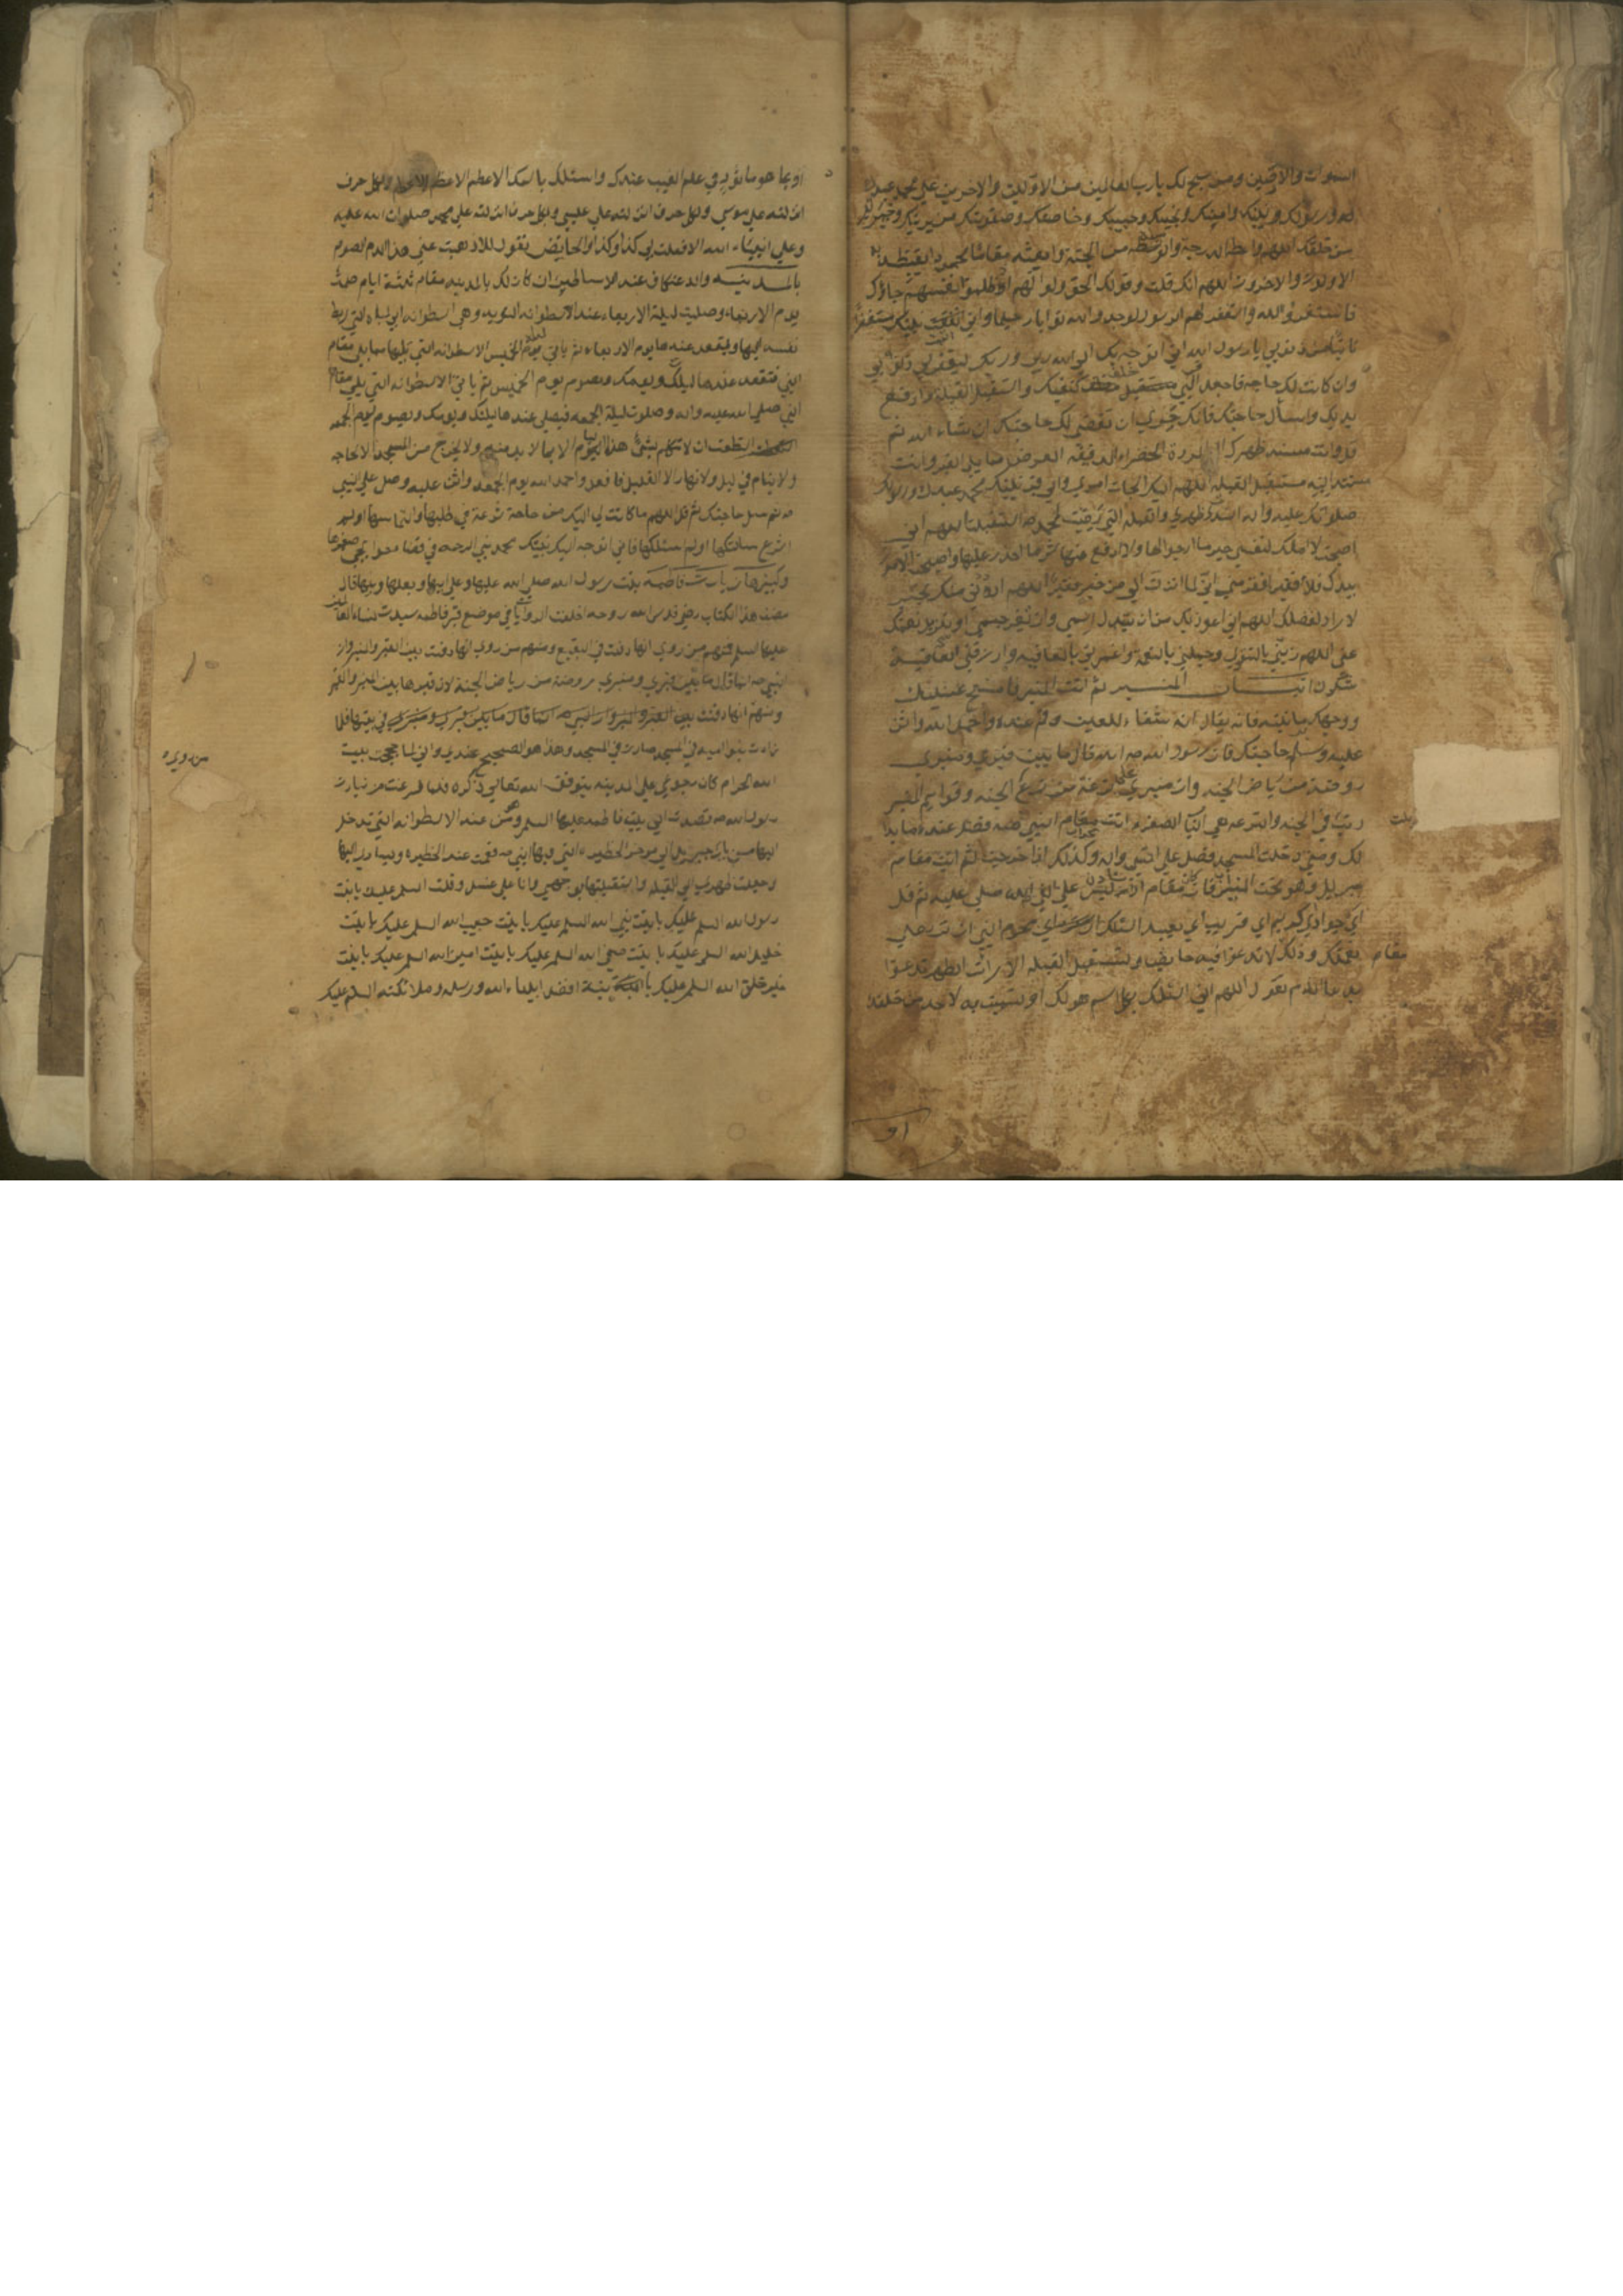 السموات والارضين ومن سبح لك يا رب العالمين من الاولين والاخرين على محمد عبدك
ورسولك ونبيك وامينك ونجيبك وحبيبك وخاصتك وصفوتك من بريتك وخيرتك
من خلقك اللهم واعطه الدرجة والوسيلة من الجنة وابعثه مقاما محمودا يغبطه به
الاولون والاخرون اللهم انك قلت وقولك الحق ولو انهم اذ ظلموا انفسهم جاؤك
فاستغفروا الله واستغفر لهم الرسول لوجدوا الله توابا رحيما واني اتيت نبيك مستغفرا
تائبا من ذنوبي يا رسول الله اني اتوجه بك الى الله ربي وربك ليغفر لي ذنوبي
وان كانت لك حاجة فاجعل النبي خلف كتفيك واستقبل القبلة وارفع
يديك واسأل حاجتك فانك حري ان تقضى لك حاجتك ان شاء الله ثم
قل وانت مسند ظهرك الى المروة الخضراء الدقيقة العرض مما يلي القبر وانت
مسند اليه مستقبل القبلة اللهم اليك الجأت امري والى قبر نبيك محمد عبدك ورسولك
صلواتك عليه واله اسندت ظهري والقبلة التي رضيت لمحمد صه استقبلت اللهم اني
اصبحت لا املك لنفسي خير ما ارجو لها ولا ادفع عنها شر ما احذر عليها واصبحت الامور
بيدك فلا فقير افقر مني اني لما انزلت الي من خير فقير اللهم ارددني منك بخير
لا راد لفضلك اللهم اني اعوذ بك من ان تبدل اسمي وان تغير جسمي او تزيل نعمتك
عني اللهم زيني بالتقوى وجملني بالنعم واغمرني بالعافية وارزقني شكر العافية
اتيان المنبر ثم ائت المنبر فامسح عينيك
ووجهك برمانتيه فانه يقال انه شفاء للعين وقم عنده واحمد الله واثن
عليه وسل حاجتك فان رسول الله صه اله قال ما بين قبري ومنبري
روضة من رياض الجنة وان منبري على ترعة من ترع الجنة وقوائم المنبر
رتب في الجنة والترعة هي الباب الصغير ثم ائت مقام النبي صه فصل عنده ما بدا
لك ومتى دخلت المسجد فصل على النبي واله وكذلك اذا خرجت ثم ائت مقام
جبريل وهو تحت الميزاب فانه كان مقام اذا استاذن على نبي الله صلى عليه ثم قل
اي جواد اي كريم اي قريب اي بعيد اسئلك ان تصلي
مقام
نعمتك وذلك لا تدعو فيه حائض وتستقبل القبلة الا رات الطهر تدعو
بدعاء الدم تقول اللهم اني اسئلك بكل اسم هو لك او تسميت به لاحد من خلقك
او
او بما هو ماثور في علم الغيب عندك واسئلك باسمك الاعظم الاعظم الاعظم وبكل حرف
انزلته على موسى وبكل حرف انزلته على عيسى وبكل حرف انزلته على محمد صلوات الله عليه
وعلى انبياء الله الا فعلت بي كذا وكذا والحائض تقول الا اذهبت عني هذا الدم الصوم
بالمدينة والاعتكاف عند الاساطين ان كان لك بالمدينة مقام ثلثة ايام صمت
يوم الاربعاء وصليت ليلة الاربعاء عند الاسطوانة التوبة وهي اسطوانة ابي لبابه التي ربط
نفسه اليها ويقعد عندها يوم الاربعاء ثم ياتي ليلة الخميس الاسطوانة التي تليها مما يلي مقام
النبي فتقعد عندها ليلتك ويومك وتصوم يوم الخميس ثم ياتي الاسطوانة التي يلي مقام
النبي صلى الله عليه واله وصلوته ليلة الجمعة فيصلي عندها ليلتك ويومك وتصوم يوم الجمعة
استطعت ان لا تتكلم بشئ هذا اليوم الا بما لا بد منه ولا يخرج من المسجد الا لحاجة
ولا ينام في ليل ولا نهار الا القليل فافعل واحمد الله يوم الجمعة واثن عليه وصل على النبي
صه ثم سل حاجتك ثم قل اللهم ما كانت لي اليك من حاجة شرعت في طلبها والتماسها او لم
اشرع سالتكها او لم اسئلكها فاني اتوجه اليك بنبيك محمد نبي الرحمة في قضاء حوائجي صغيرها
وكبيرها زيارت فاطمة بنت رسول الله صلى الله عليها وعلى ابيها وبعلها وبنيها قال
مصنف هذا الكتاب رضي قدس الله روحه اختلفت الروايات في موضع قبر فاطمة سيدة نساء العالمين
عليها السلم فمنهم من روى انها دفنت في البقيع ومنهم من روى انها دفنت بين القبر والمنبر وان
النبي صه انما قال ما بين قبري ومنبري روضة من رياض الجنة لان قبرها بين المنبر والقبر
ومنهم انها دفنت في بيتها فلما
زادت بنو اميه في المسجد صارت في المسجد وهذا هو الصحيح عندي واني لما حججت بيت
من روى
الله الحرام كان رجوعي على المدينه بتوفيق الله تعالى ذكره فلما فرغت من زيارت
رسول الله صه قصدت الى بيت فاطمه عليها السلم وهو من عند الاسطوانه التي تدخل
اليها من باب جبريل الى موخر الحظيره التي فيها النبي صه فقمت عند الحظيره ويساري اليها
وجعلت ظهري الى القبله واستقبلتها بوجهي وانا على غسل وقلت السلم عليك يا بنت
رسول الله السلم عليك يا بنت نبي الله السلم عليك يا بنت حبيب الله السلم عليك يا بنت
خليل الله السلم عليك يا بنت صفي الله السلم عليك يا بنت امين الله السلم عليك يا بنت
خير خلق الله السلم عليك يا بنت افضل انبياء الله ورسله وملائكته السلم عليك